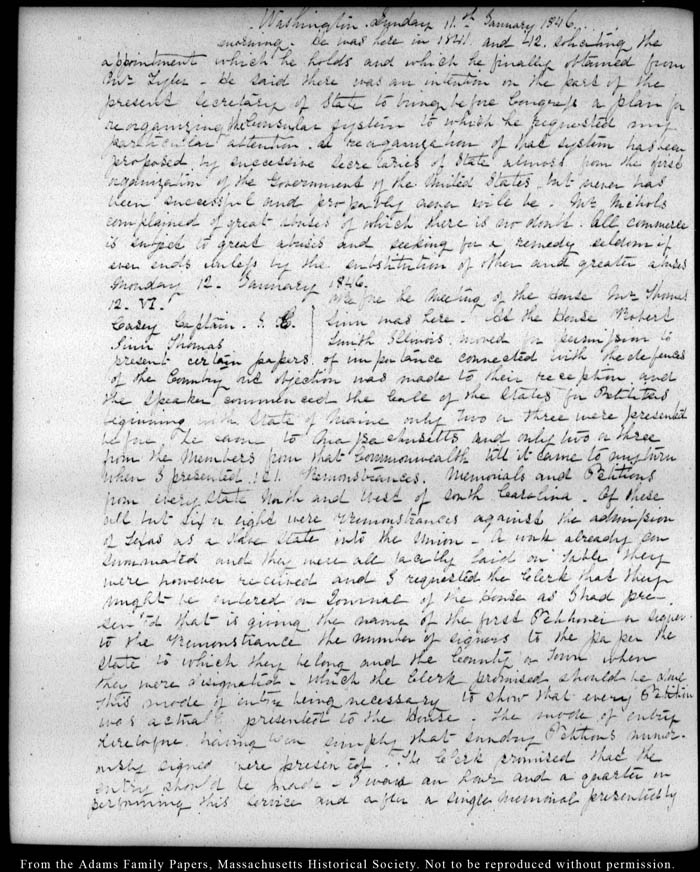 Washington Sunday 11.th January 1846.
morning. He was here in 1841. and 42. soliciting the
appointment which he holds and which he finally obtained from
Mr Tyler - He said there was an intention on the part of the
present Secretary of State to bring before Congress a plan for
reorganizing the Consular system to which he requested my
particular attention. A reorganization of that system has been
proposed by successive Secretaries of State almost from the first
organization of the Government of the United States, but never has
been successful and probably never will be. Mr Nichols
complained of great abuses of which there is no doubt. All commerce
is subject to great abuses and seeking for a remedy seldom if
ever ends unless by the substitution of other and greater abuses
Monday 12. January 1846.
12. VI. Before the meeting of the House Mr Thomas
Casey Captain. J. C. Sinn was here. At the House Robert
Sinn Thomas Smith Illinois, moved for permission to
present certain papers of importance connected with the defences
of the Country no objection was made to their reception, and
the Speaker commenced the Call of the States for Petitions
beginning with State of Maine only two or three were presented
before he came to Massachusetts and only two or three
from the Members from that Commonwealth till it came to my turn
when I presented 121. Remonstrances. Memorials and Petitions
from every State North and West of South Carolina. Of these
all but six or eight were Remonstrances against the admission
of Texas as a slave State into the Union - A work already con
summated and they were all tacitly laid on Table they
were however received and I requested the Clerk that they
might be entered on Journal of the House as I had pre-
sented that is giving the name of the first Petitioner or signer
to the Remonstrance the number of signers to the paper the
State to which they belong and the County or Town when
they were designation - which the Clerk promised should be done
this mode of entry being necessary to show that every Petition
was actually presented to the House. The mode of entry
heretofore having been simply that sundry Petitions numer-
ously signed were presented. The Clerk promised that the
entry should be made - I was an hour and a quarter in
performing this service and after a single memorial presented by
From the Adams Family Papers, Massachusetts Historical Society. Not to be reproduced without permission.